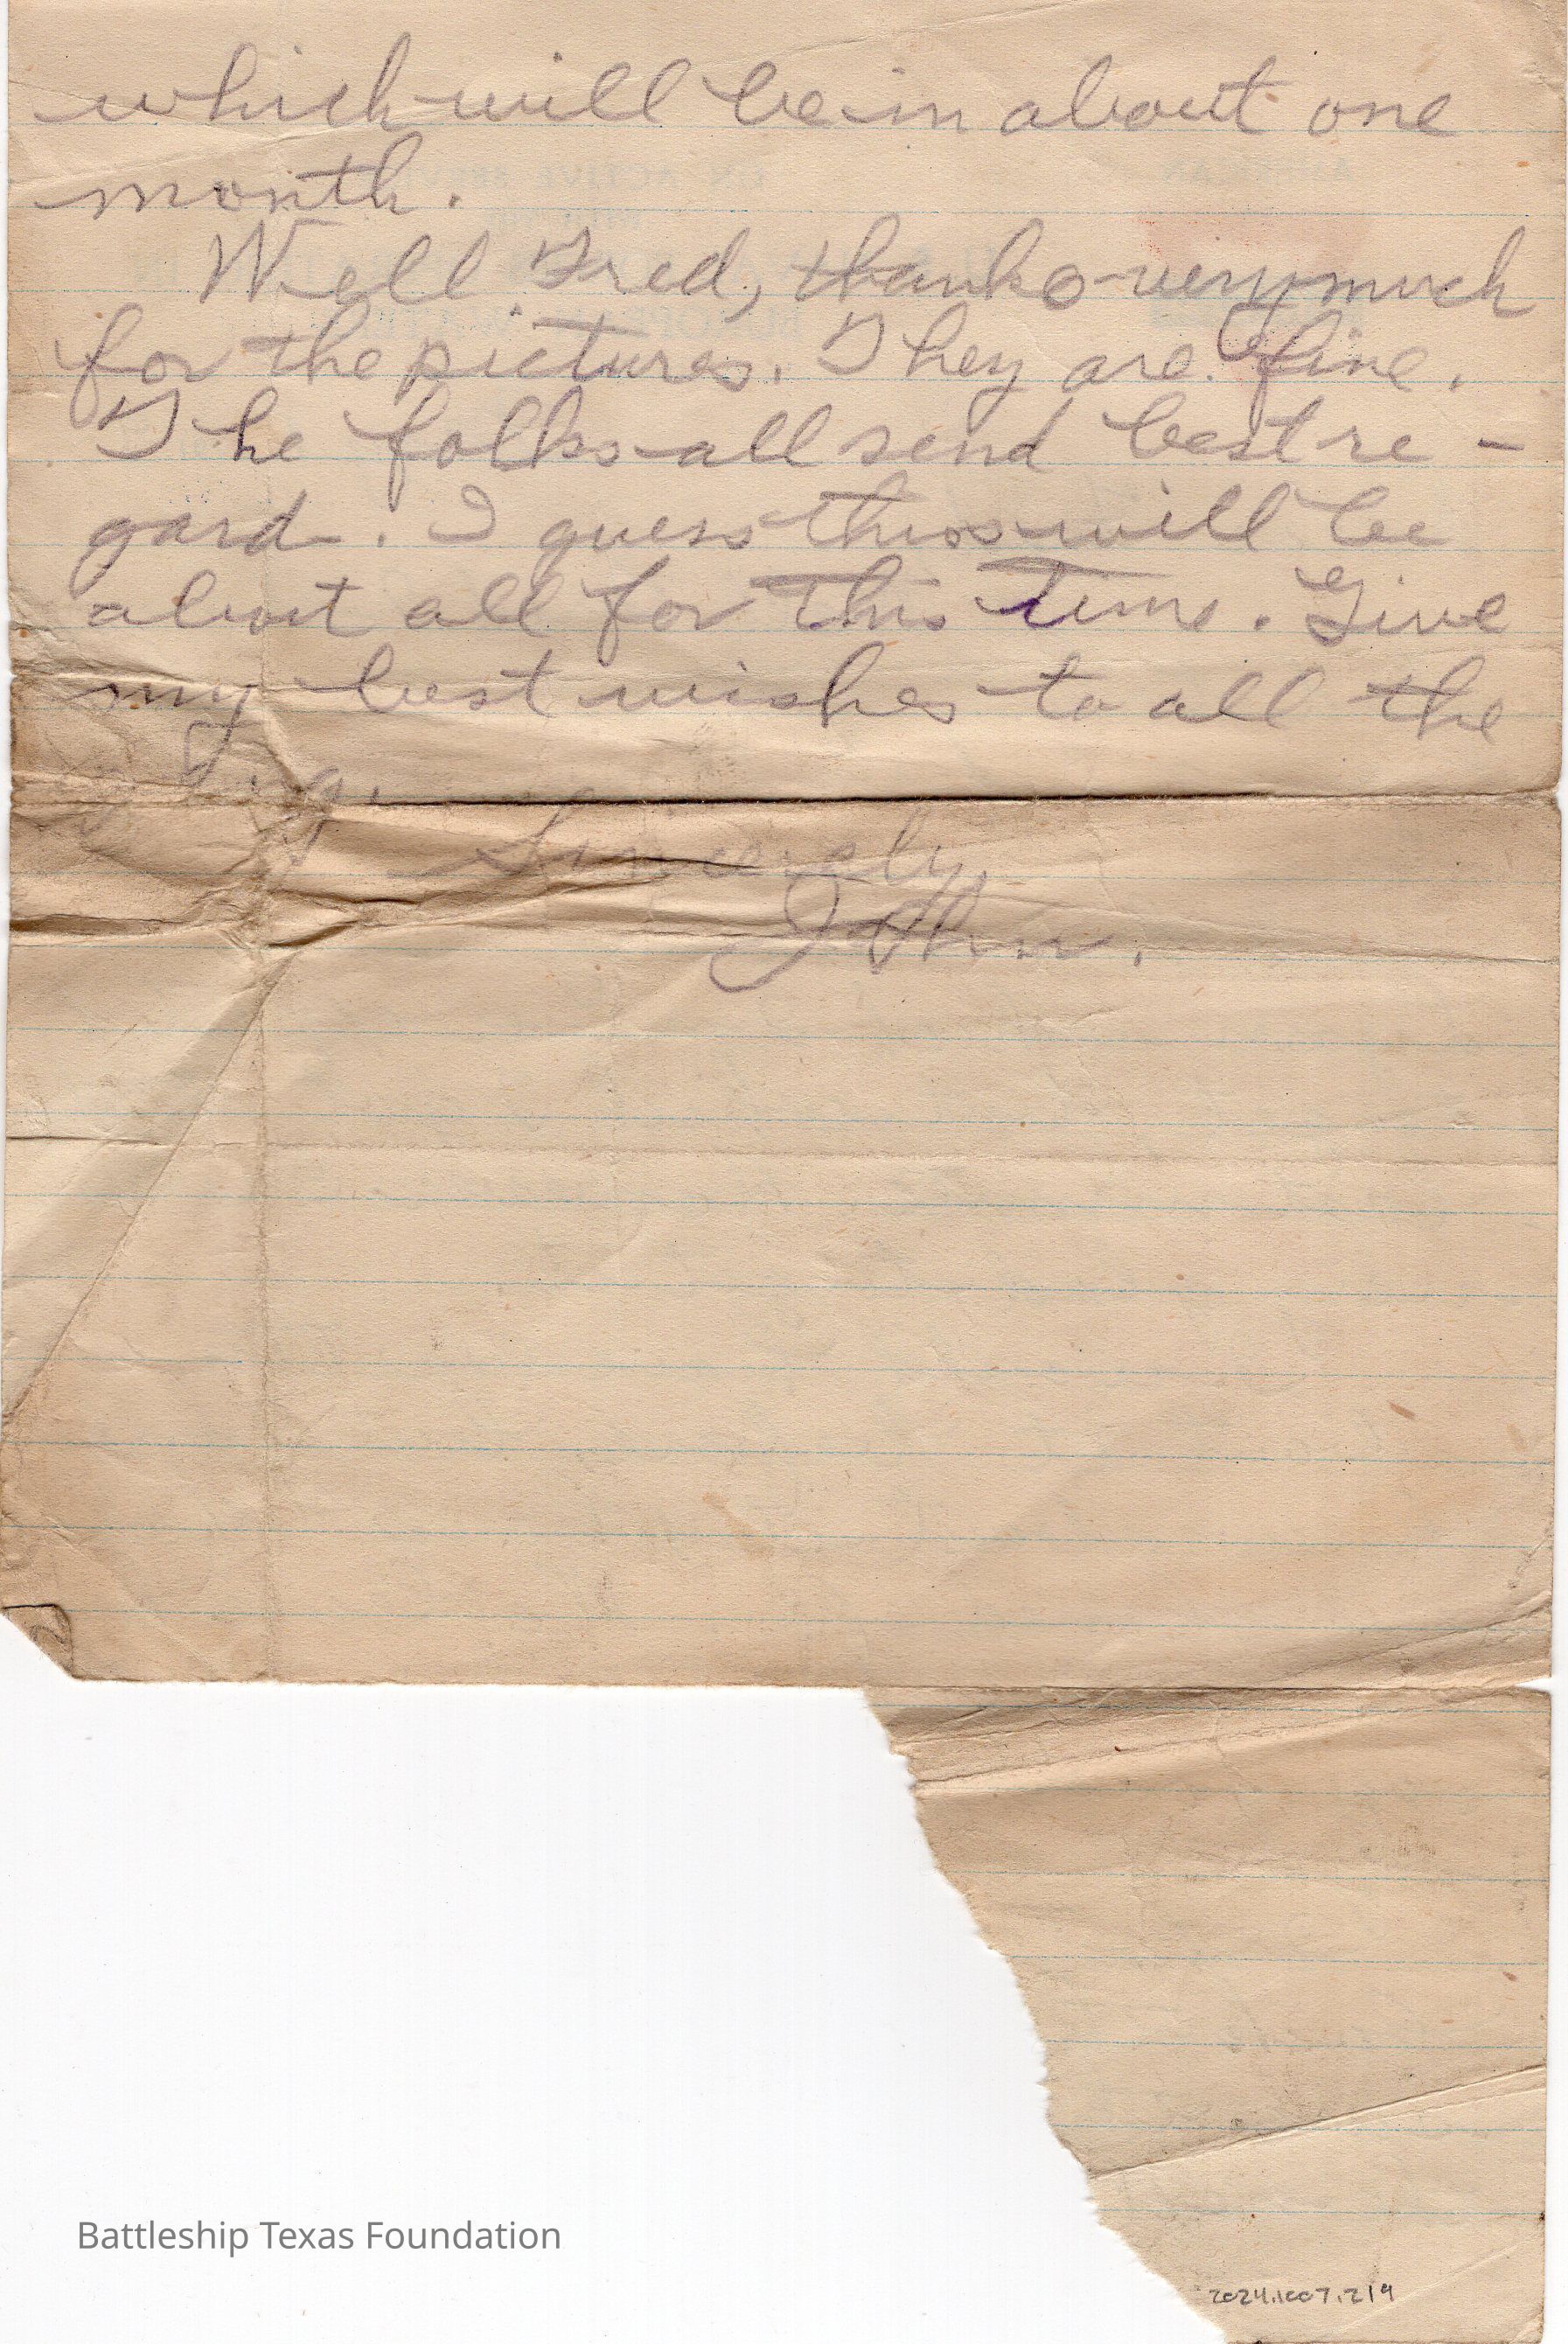 which will be in about one
month.
Well Fred, thanks very much
for the pictures. They are fine.
The folks all send best re-
gard. I guess this will be
about all for this time. Give
my best wishes to all the
Sincerely,
John.
Battleship Texas Foundation
2024.1007.219